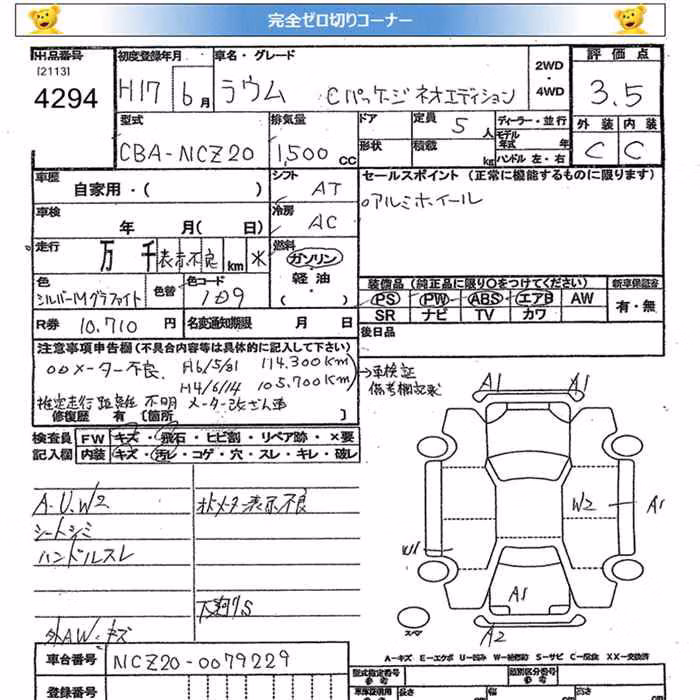 完全ゼロ切りコーナー
出品番号 [2113] 4294
初度登録年月 H17 6月
車名・グレード ラウム Cパッケージ ネオエディション
2WD・4WD
評価点 3.5
型式 CBA-NCZ20
排気量 1,500 CC
ドア
定員 5 人
ディーラー・並行
モデル年式 年
形状
積載 kg
ハンドル 左・右
外装 C 内装 C
車歴 自家用・( )
シフト AT
セールスポイント (正常に機能するものに限ります)
車検 年 月( 日)
冷房 AC
○アルミホイール
走行 万 千 表示不良 km ※
燃料 ガソリン 軽油・( )
色 シルバーMグラファイト
色替
色コード 1D9
装備品 (純正品に限り○をつけてください)
新車保証書
PS PW ABS エアB AW
有・無
SR ナビ TV カワ
R券 10,710 円
名変通知期限 月 日
後日品
注意事項申告欄 (不具合内容等は具体的に記入して下さい)
ODメーター不良. H16/5/31 114,300Km
H14/6/14 105,700Km
→車検証備考欄記録
推定走行距離不明 メーター改ざん車
修復歴 有 [箇所 ]
検査員記入欄
FW キズ・飛石・ヒビ割・リペア跡・×要
内装 キズ・汚レ・コゲ・穴・スレ・キレ・破レ
A.U.W2
オドメーター表示不良
シートシミ
ハンドルスレ
下廻りS
外AW・キズ
A1 A1
W2 A1
W1
A1
A2
スペア
A-キズ E-エクボ U-凹み W-補修跡 S-サビ C-腐食 XX-交換済
車台番号 NCZ20-0079229
登録番号
型式指定番号 参考
類別区分番号 参考
長さ 幅 高さ